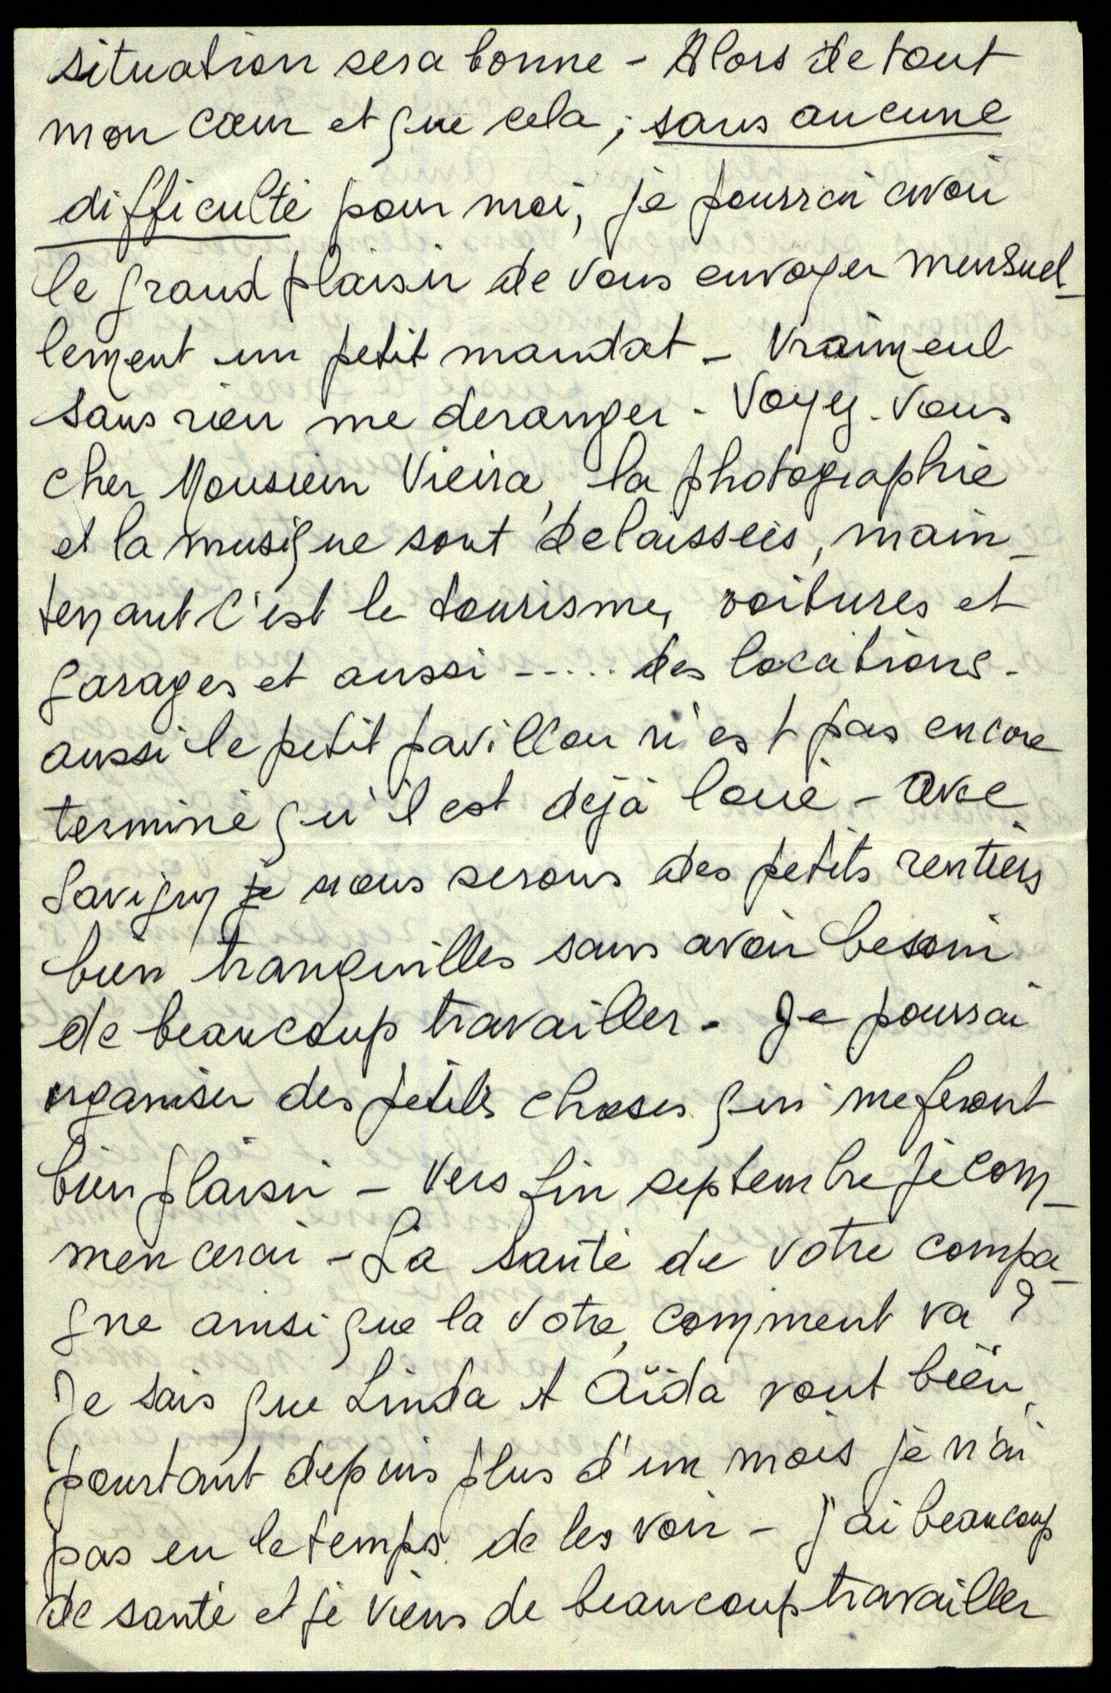 situation sera bonne - Alors de tout
mon cœur et que cela, sans aucune
difficulté pour moi, je pourrai avoir
le grand plaisir de vous envoyer mensuel-
lement un petit mandat - Vraiment
sans rien me deranger - Voyez-vous
cher Monsieur Vieira, la photographie
et la musique sont délaissées, main-
tenant c'est le tourisme, voitures et
garages et aussi ..... des locations -
aussi le petit pavillon n'est pas encore
terminé qu'il est déjà loué - avec
Savigny je nous serons des petits rentiers
bien tranquilles sans avoir besoin
de beaucoup travailler - Je pourrai
organiser des petites choses qui me feront
bien plaisir - Vers fin septembre je com-
mencerai - La santé de votre compa-
gne ainsi que la votre, comment va ?
Je sais que Linda et Aïda vont bien,
pourtant depuis plus d'un mois je n'ai
pas eu le temps de les voir - J'ai beaucoup
de santé et je viens de beaucoup travailler